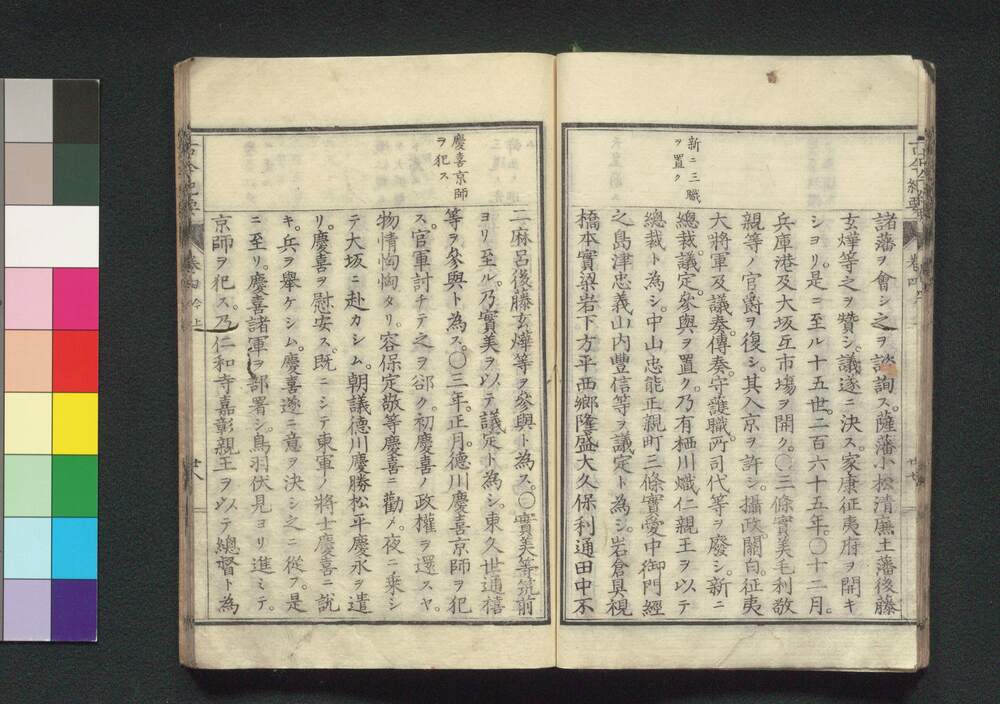 新ニ三職
ヲ置ク
諸藩ヲ會シ之ヲ諮詢ス。薩藩小松清廉土藩後藤
玄燁等之ヲ贊シ議遂ニ決ス。家康征夷府ヲ開キ
シヨリ。是ニ至ル十五世。二百六十五年。〇十二月。
兵庫港及大坂互市場ヲ開ク。〇三條實美毛利敬
親等ノ官爵ヲ復シ。其入京ヲ許シ。攝政。關白。征夷
大將軍及議奏。傳奏。守護職。所司代等ヲ廢シ。新ニ
總裁。議定。參與ヲ置ク。乃有栖川熾仁親王ヲ以テ
總裁ト為シ。中山忠能正親町三條實愛中御門經
之島津忠義山内豐信等ヲ議定ト為シ。岩倉具視
橋本實梁岩下方平西郷隆盛大久保利通田中不
慶喜京師
ヲ犯ス
二麻呂後藤玄燁等ヲ參與ト為ス。〇實美等筑前
ヨリ至ル。乃實美ヲ以テ議定ト為シ。東久世通禧
等ヲ參與ト為ス。〇三年。正月。德川慶喜京師ヲ犯
ス。官軍討チテ之ヲ郤ク。初慶喜ノ政權ヲ還スヤ。
物情恟恟タリ。容保定敬等慶喜ニ勸メ。夜ニ乘シ
テ大坂ニ赴カシム。朝議德川慶勝松平慶永ヲ遣
リ。慶喜ヲ慰安ス。既ニシテ東軍ノ將士慶喜ニ說
キ。兵ヲ舉ケシム。慶喜遂ニ意ヲ決シ之ニ從フ。是
ニ至リ。慶喜諸軍ヲ部署シ。鳥羽伏見ヨリ進ミテ。
京師ヲ犯ス。乃仁和寺嘉彰親王ヲ以テ總督ト為